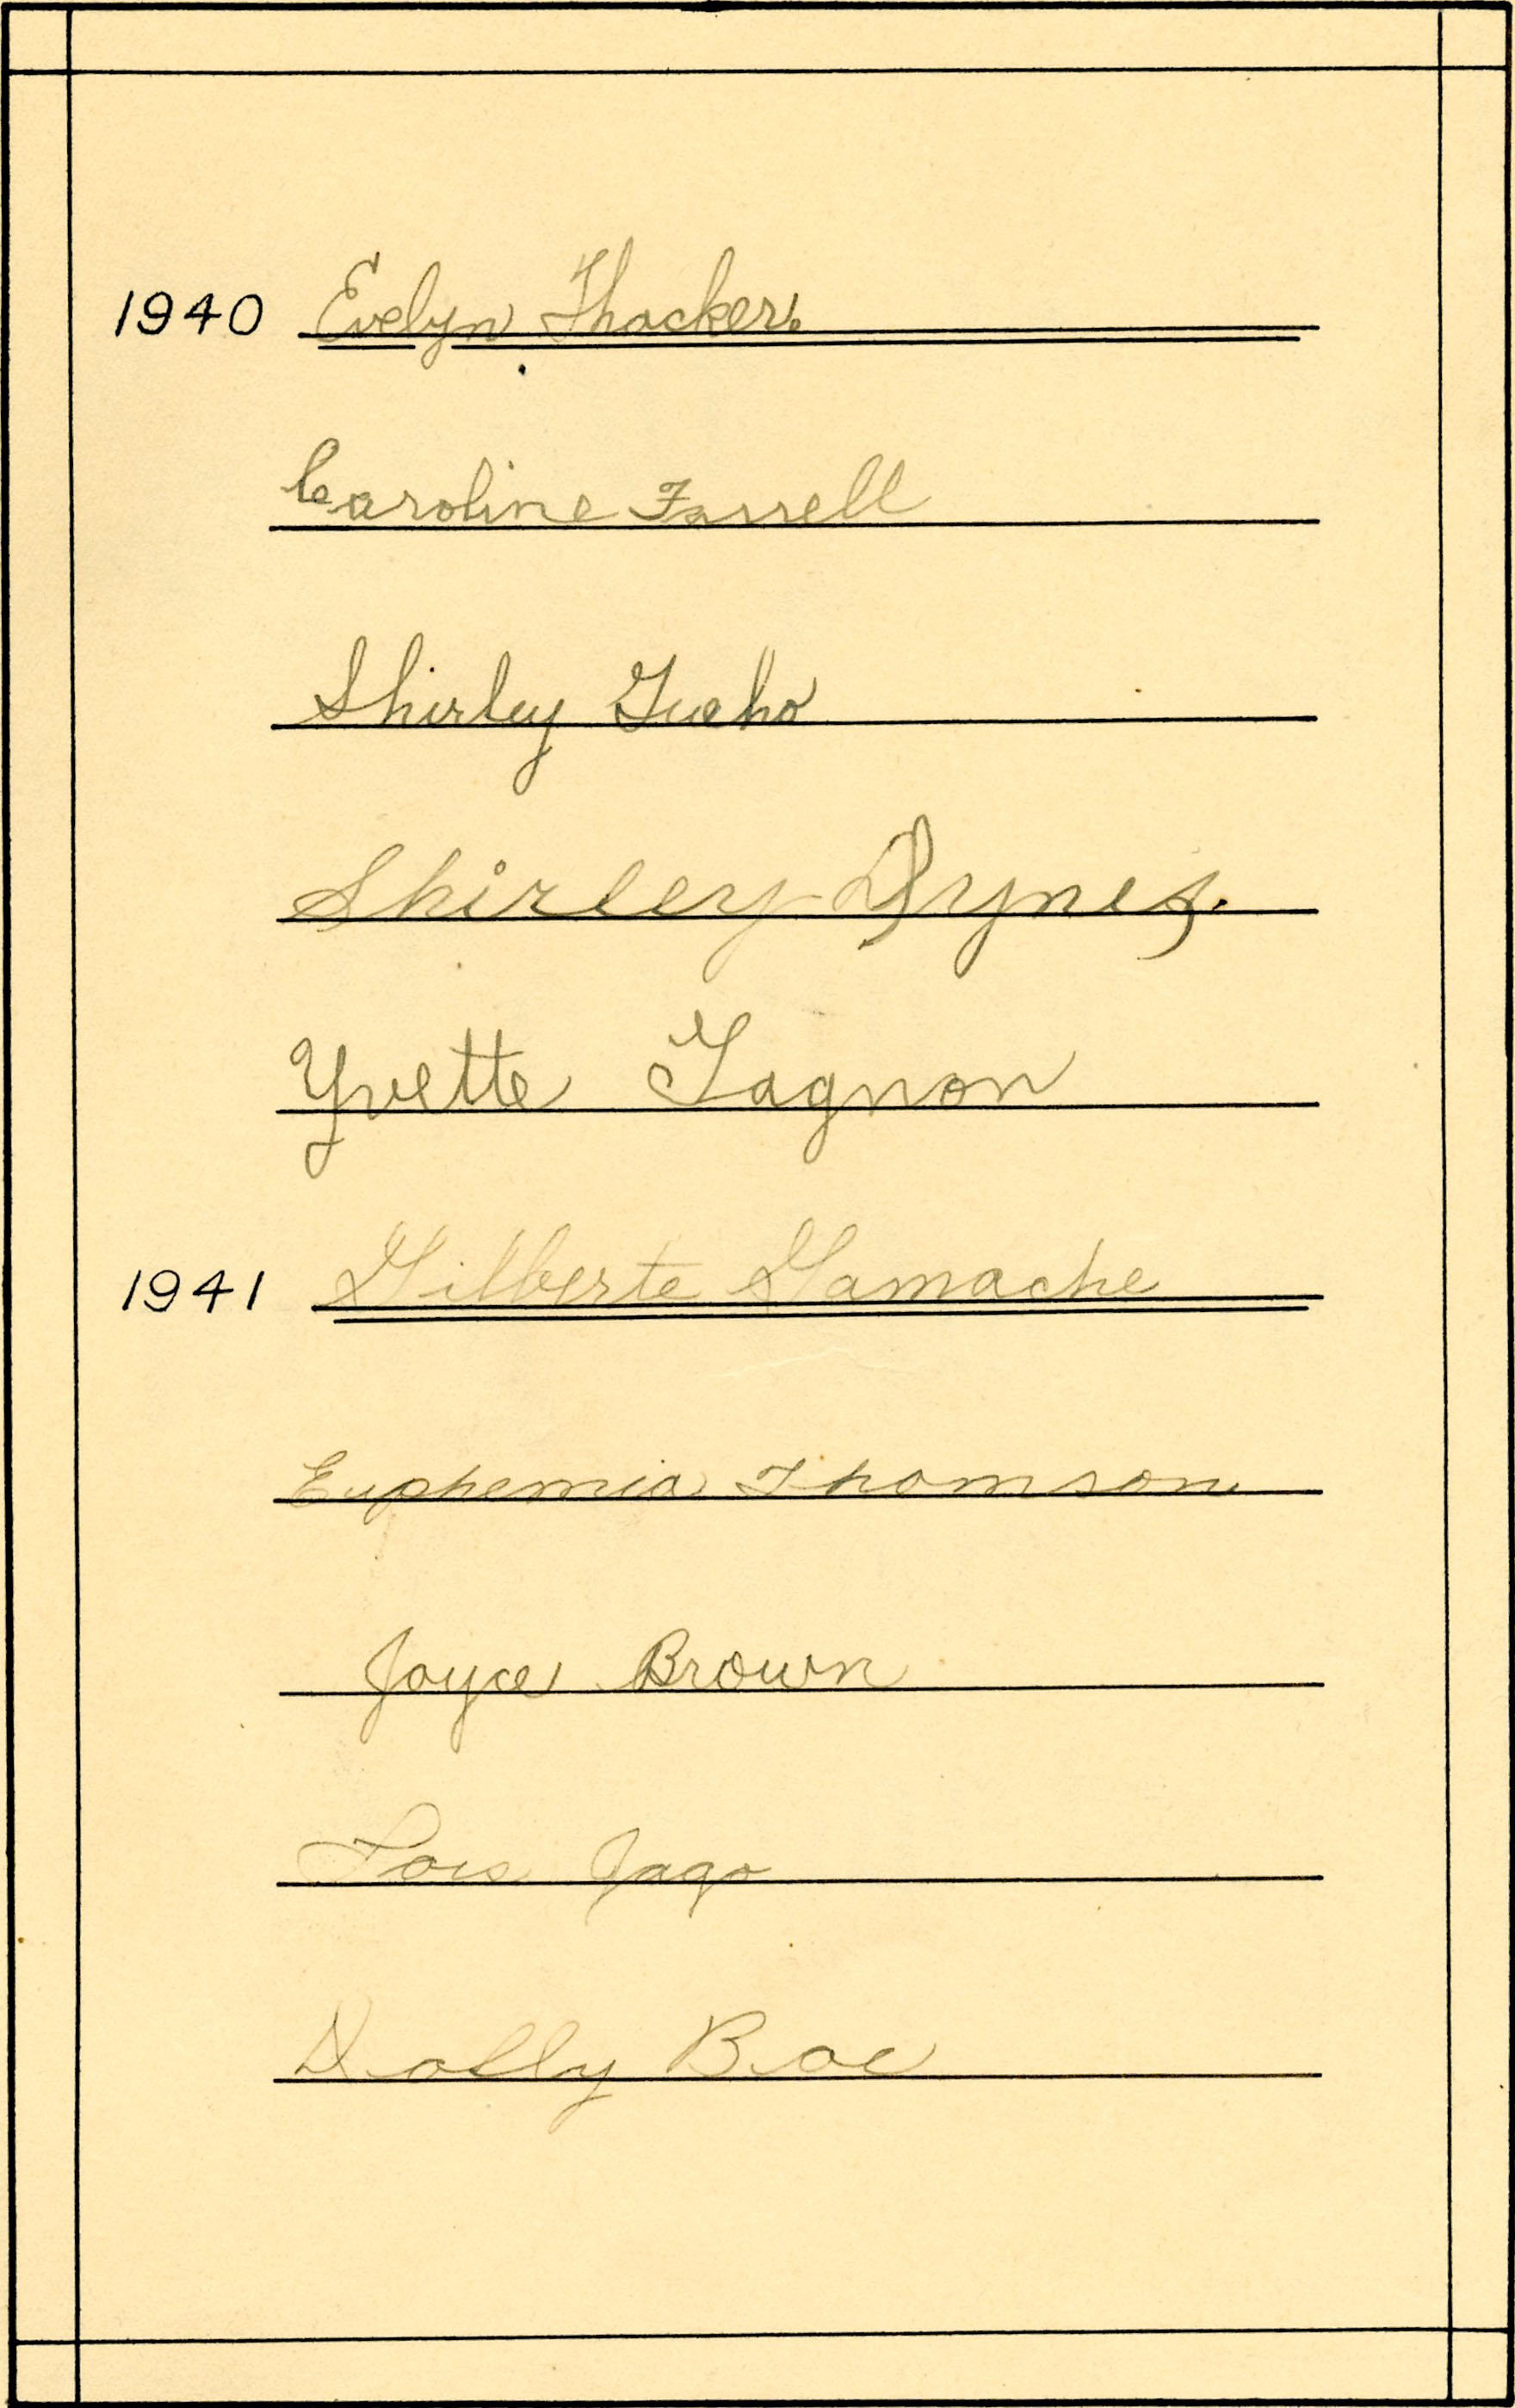 1940 Evelyn Thacker.
Caroline Farrell
Shirley Gueho
Shirley Dynes.
Yvette Gagnon
1941 Gilberte Gamache
Euphemia Thomson.
Joyce Brown
Lois Jago
Dolly Boe